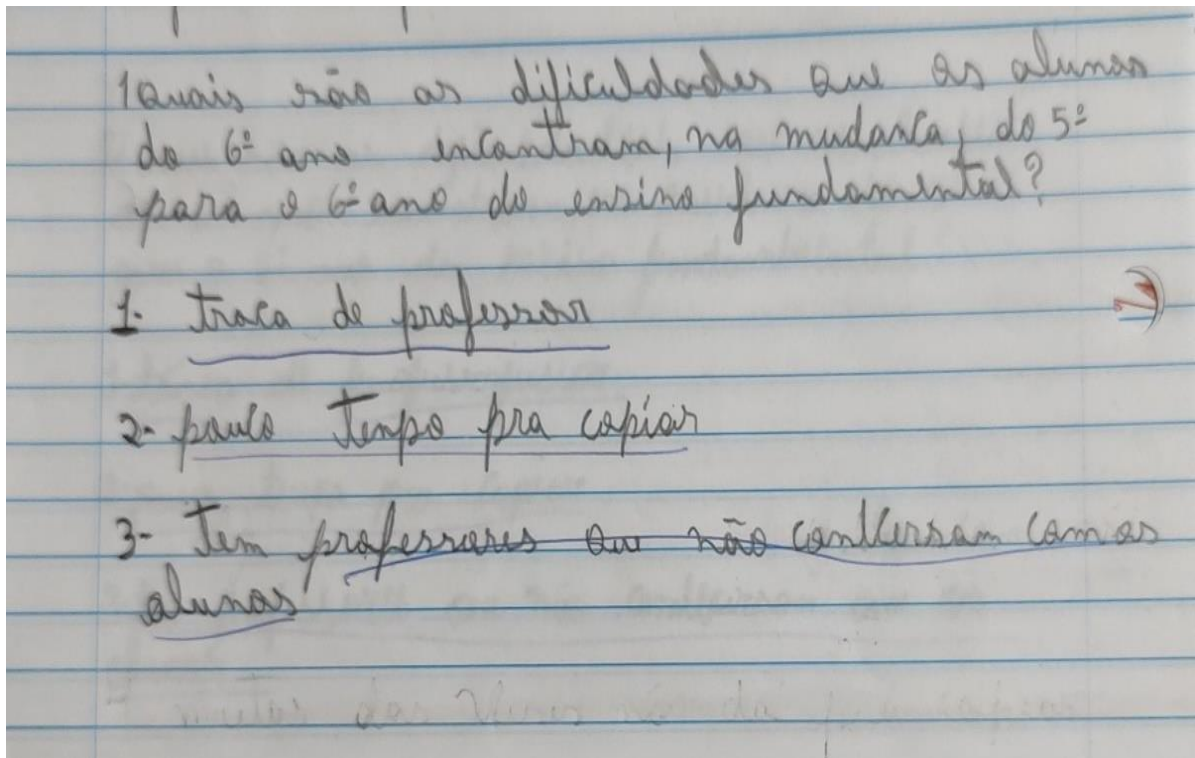 1 Quais são as dificuldades que os alunos
do 6º ano encontram, na mudanca, do 5º
para o 6º ano do ensino fundamental?
1- troca de professor
2- pouco tempo pra copiar
3- Tem professores que não conversam com os
alunos